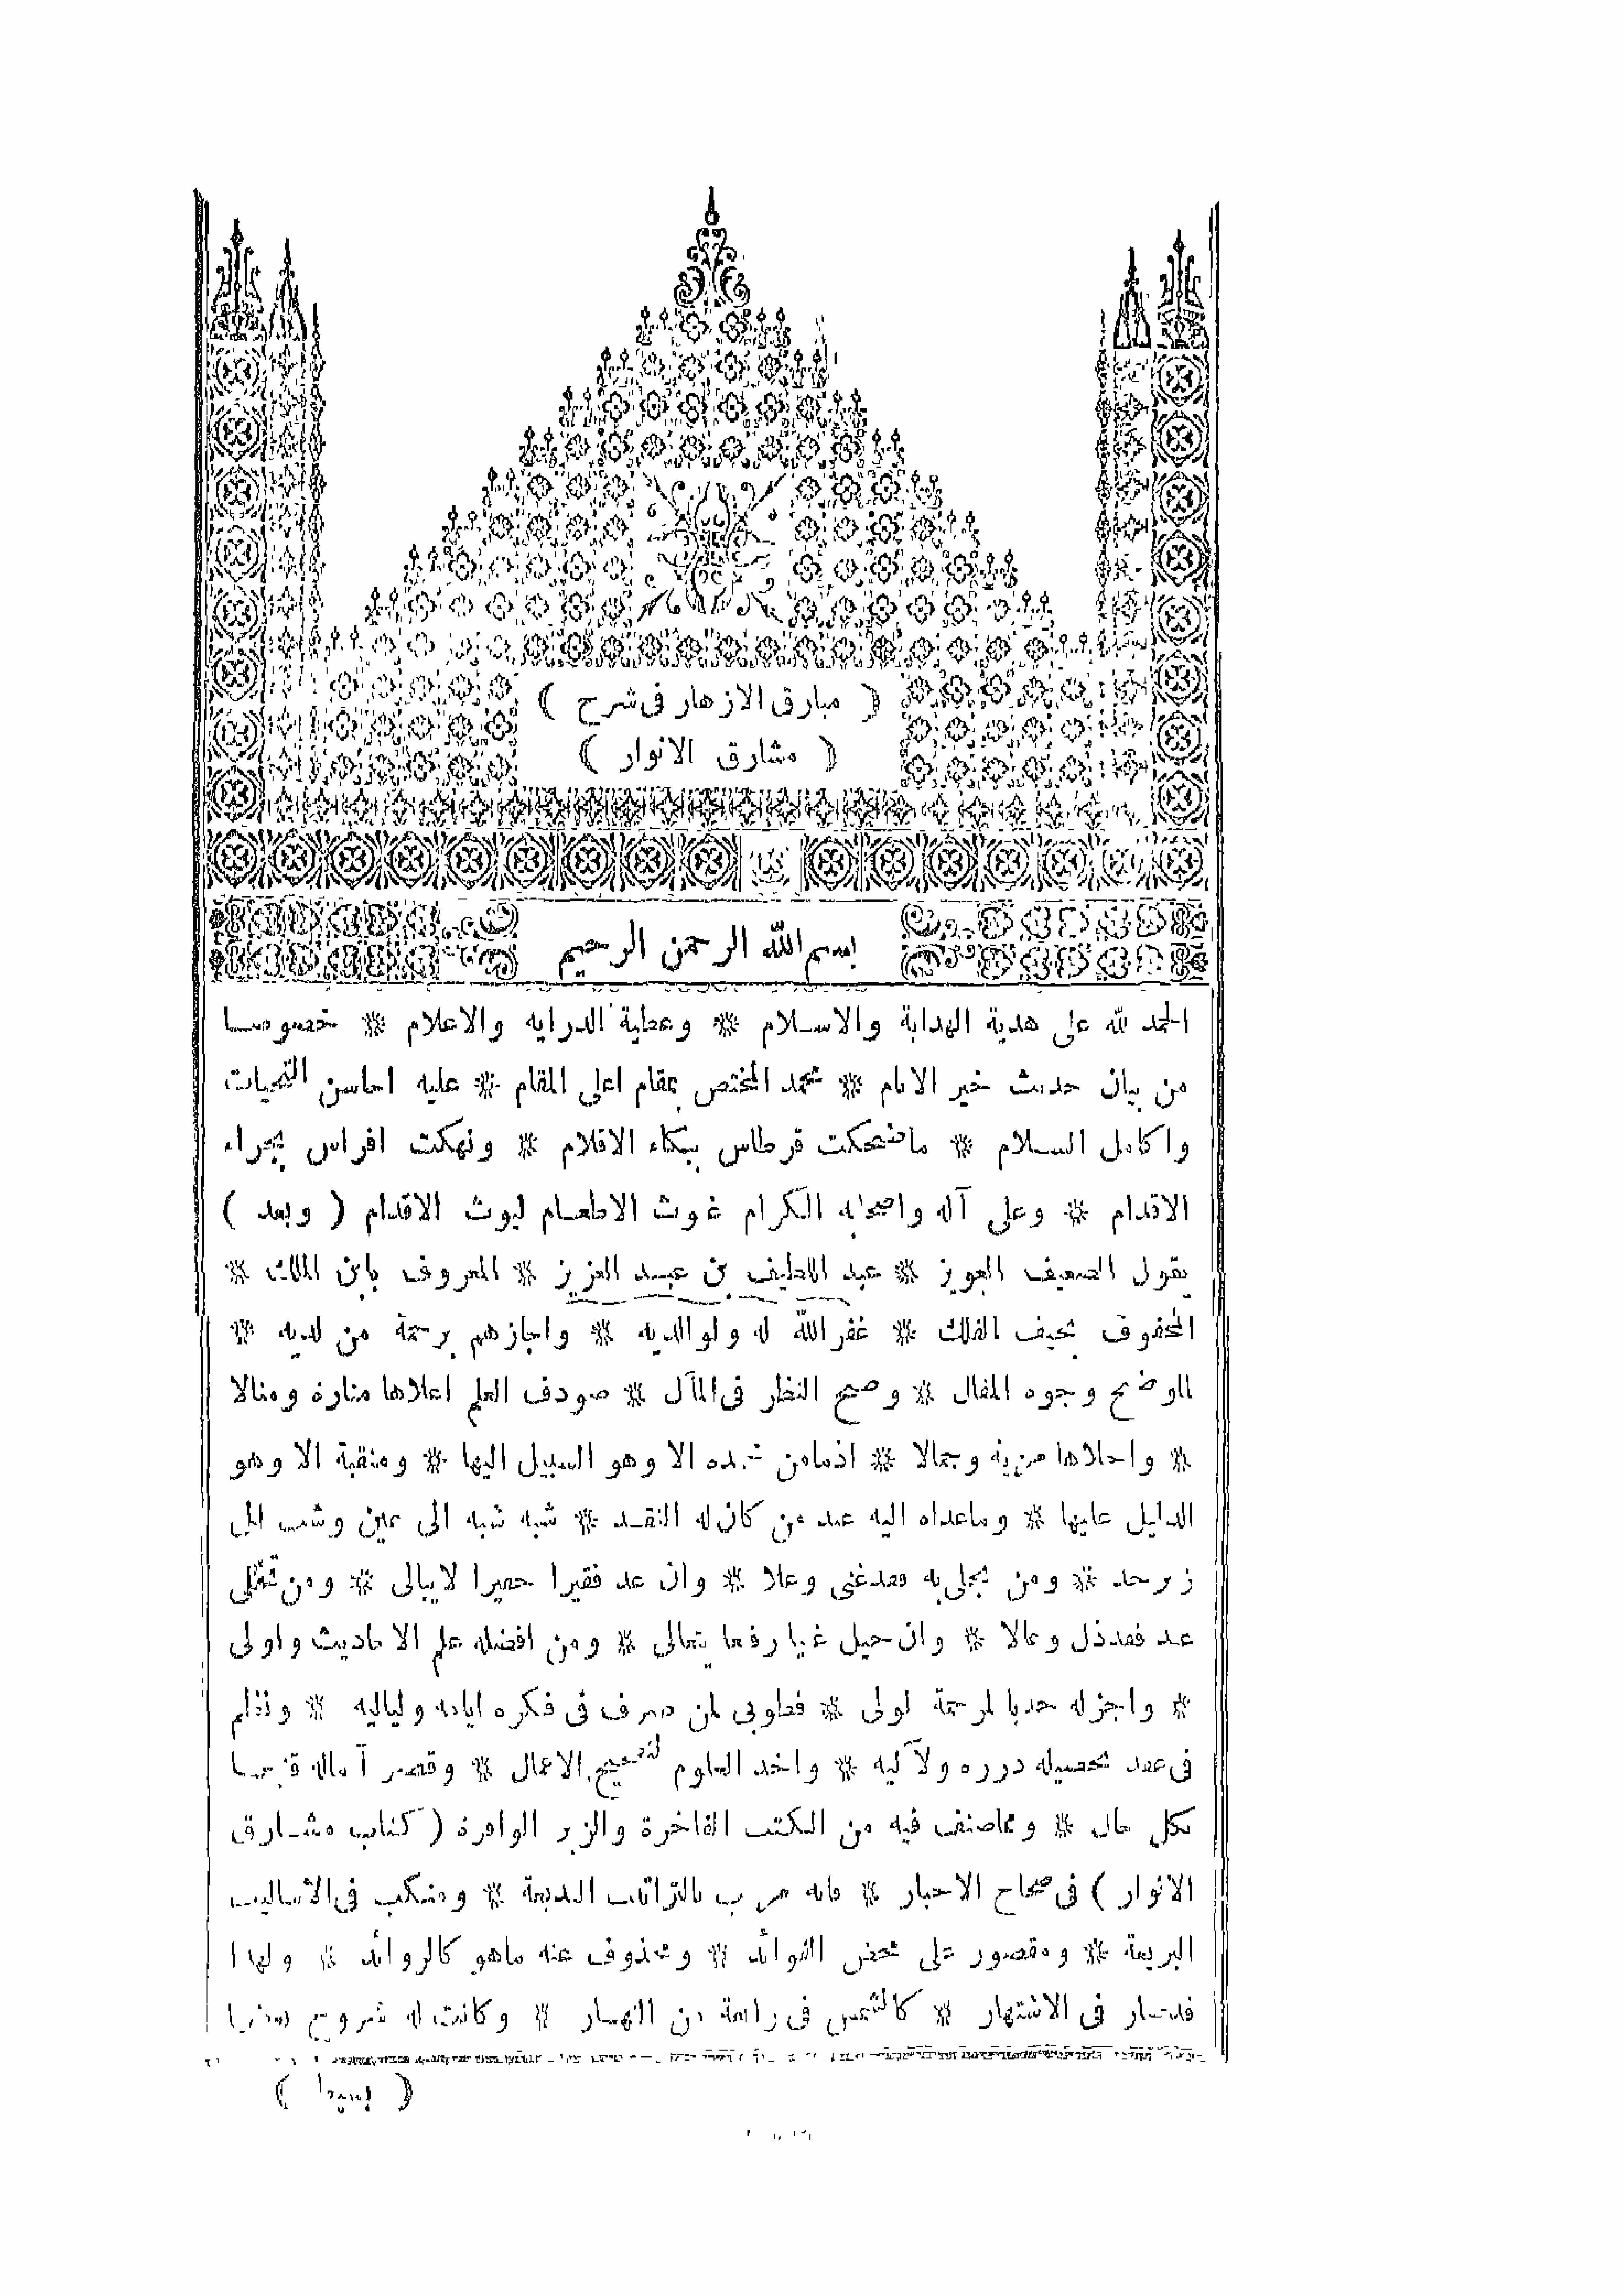 ( مبارق الازهار فى شرح )
( مشارق الانوار )
بسم الله الرحمن الرحيم
الحمد لله على هدية الهداية والاسلام * وعطية الدرايه والاعلام * خصوصا
من بيان حديث خير الانام * محمد المختص بمقام اعلى المقام * عليه احاسن التحيات
واكامل السلام * ماضحكت قرطاس ببكاء الاقلام * ونهكت افراس بجراء
الاقدام * وعلى آله واصحابه الكرام غوث الاطعام ليوث الاقدام ( وبعد )
يقول الضعيف العويز * عبد اللطيف بن عبد العزيز * المعروف بابن الملك *
المحفوف بحيف الفلك * غفر الله له ولوالديه * واجازهم برحمة من لديه *
لما وضح وجوه المقال * وصحح النظار فى المآل * صودف العلم اعلاها منارة ومنالا
* واحلاها مزية وجمالا * اذمامن الا وهو السبيل اليها * ومنقبة الا وهو
الدليل عليها * وماعداه اليه عند من كان له النقد * شبه شبه الى عين وشب الى
ومن به فقد غنى وعلا * وان عد فقيرا حقيرا لايبالى * ومن
عنه فقد ذل وعالا * وان غنيا رفعا يتعالى * ومن افضله علم الاحاديث واولى
* واجزله لمرحمة لولى * فطوبى لمن صرف فى فكره ايامه ولياليه * ونظم
فى عقد تحصيله درره ولآليه * واخذ العلوم لتصحيح الاعمال * وقصر آماله
بكل حال * ومماصنف فيه من الكتب الفاخرة والزبر الوافرة ( كتاب مشارق
الانوار ) فى صحاح الاخبار * فانه البديعة * فى الاساليب
البريعة * ومقصور على محض الفوائد * ومحذوف عنه ماهو كالزوائد * ولهذا
قدسار فى الاشتهار * كالشمس فى رابعة من النهار * وكانت له شروح